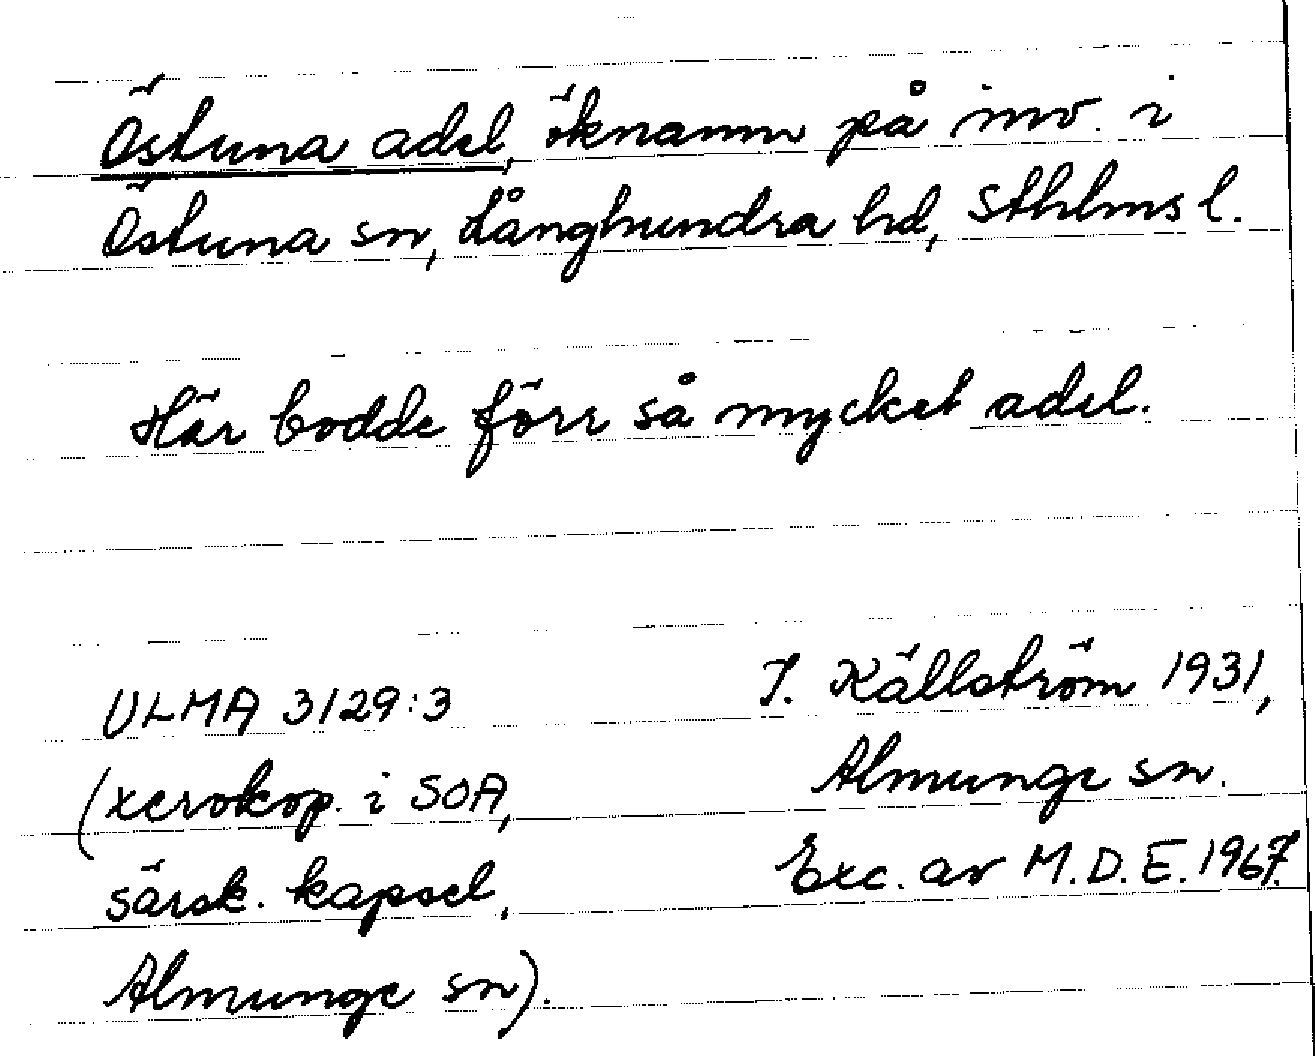 Östuna adel, öknamn på inv. i
Östuna sn, Långhundra hd, Sthlms l.
Här bodde förr så mycket adel.
ULMA 3129:3
(xerokop. i SOA,
särsk. kapsel,
Almunge sn).
J. Källström 1931,
Almunge sn.
Exc. av M.D.E. 1967.